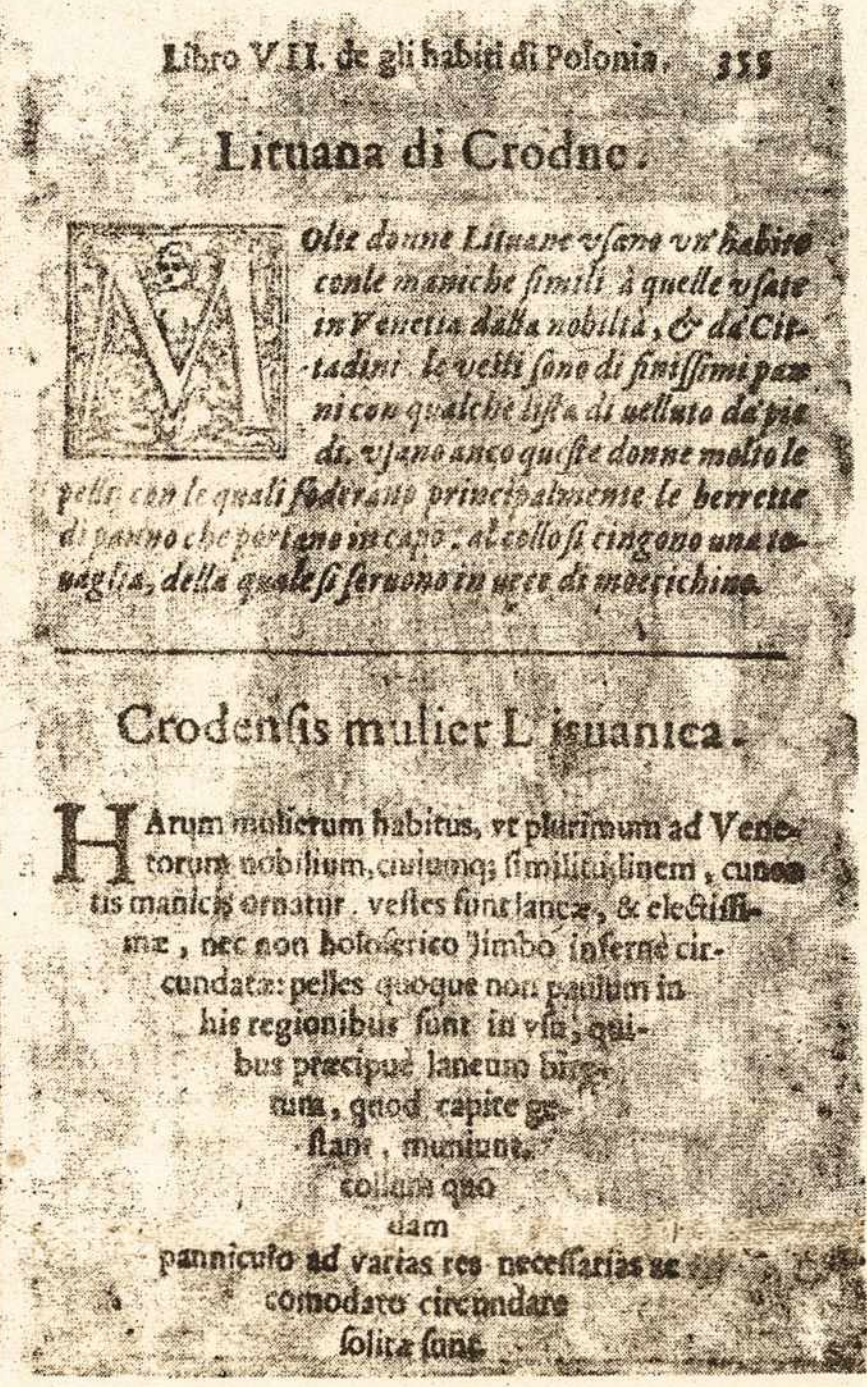 Libro VII. de gli habiti di Polonia. 355
Lituana di Crodne.
MOlte donne Lituane vſano vn'habito
conle maniche ſimili à quelle vſate
in Venetia dalla nobiltà, & da Cit-
tadini le veſti ſono di finiſſimi pan
ni con qualche liſta di uelluto da pie
di. vſano anco queſte donne molto le
pelli con le quali foderano principalmente le berrette
di panno che portano in capo. al collo ſi cingono una to-
uaglia, della quale ſi ſeruono in uece di
Crodenſis mulier Lituanica.
HArum mulierum habitus, vt plurimum ad Vene-
torum nobilium, ciuiumq; ſimilitudinem,
tis manicis ornatur. veſtes ſunt laneæ, & electiſſi-
mæ, nec non holoſerico limbo infernè cir-
cundatæ: pelles quoque non paulum in
his regionibus ſunt in vſu, qui-
bus præcipuè laneum birre-
tum, quod capite ge-
ſtant, muniunt.
collum quo
dam
panniculo ad varias res neceſſarias ac
comodato circundare
ſolitæ ſunt.